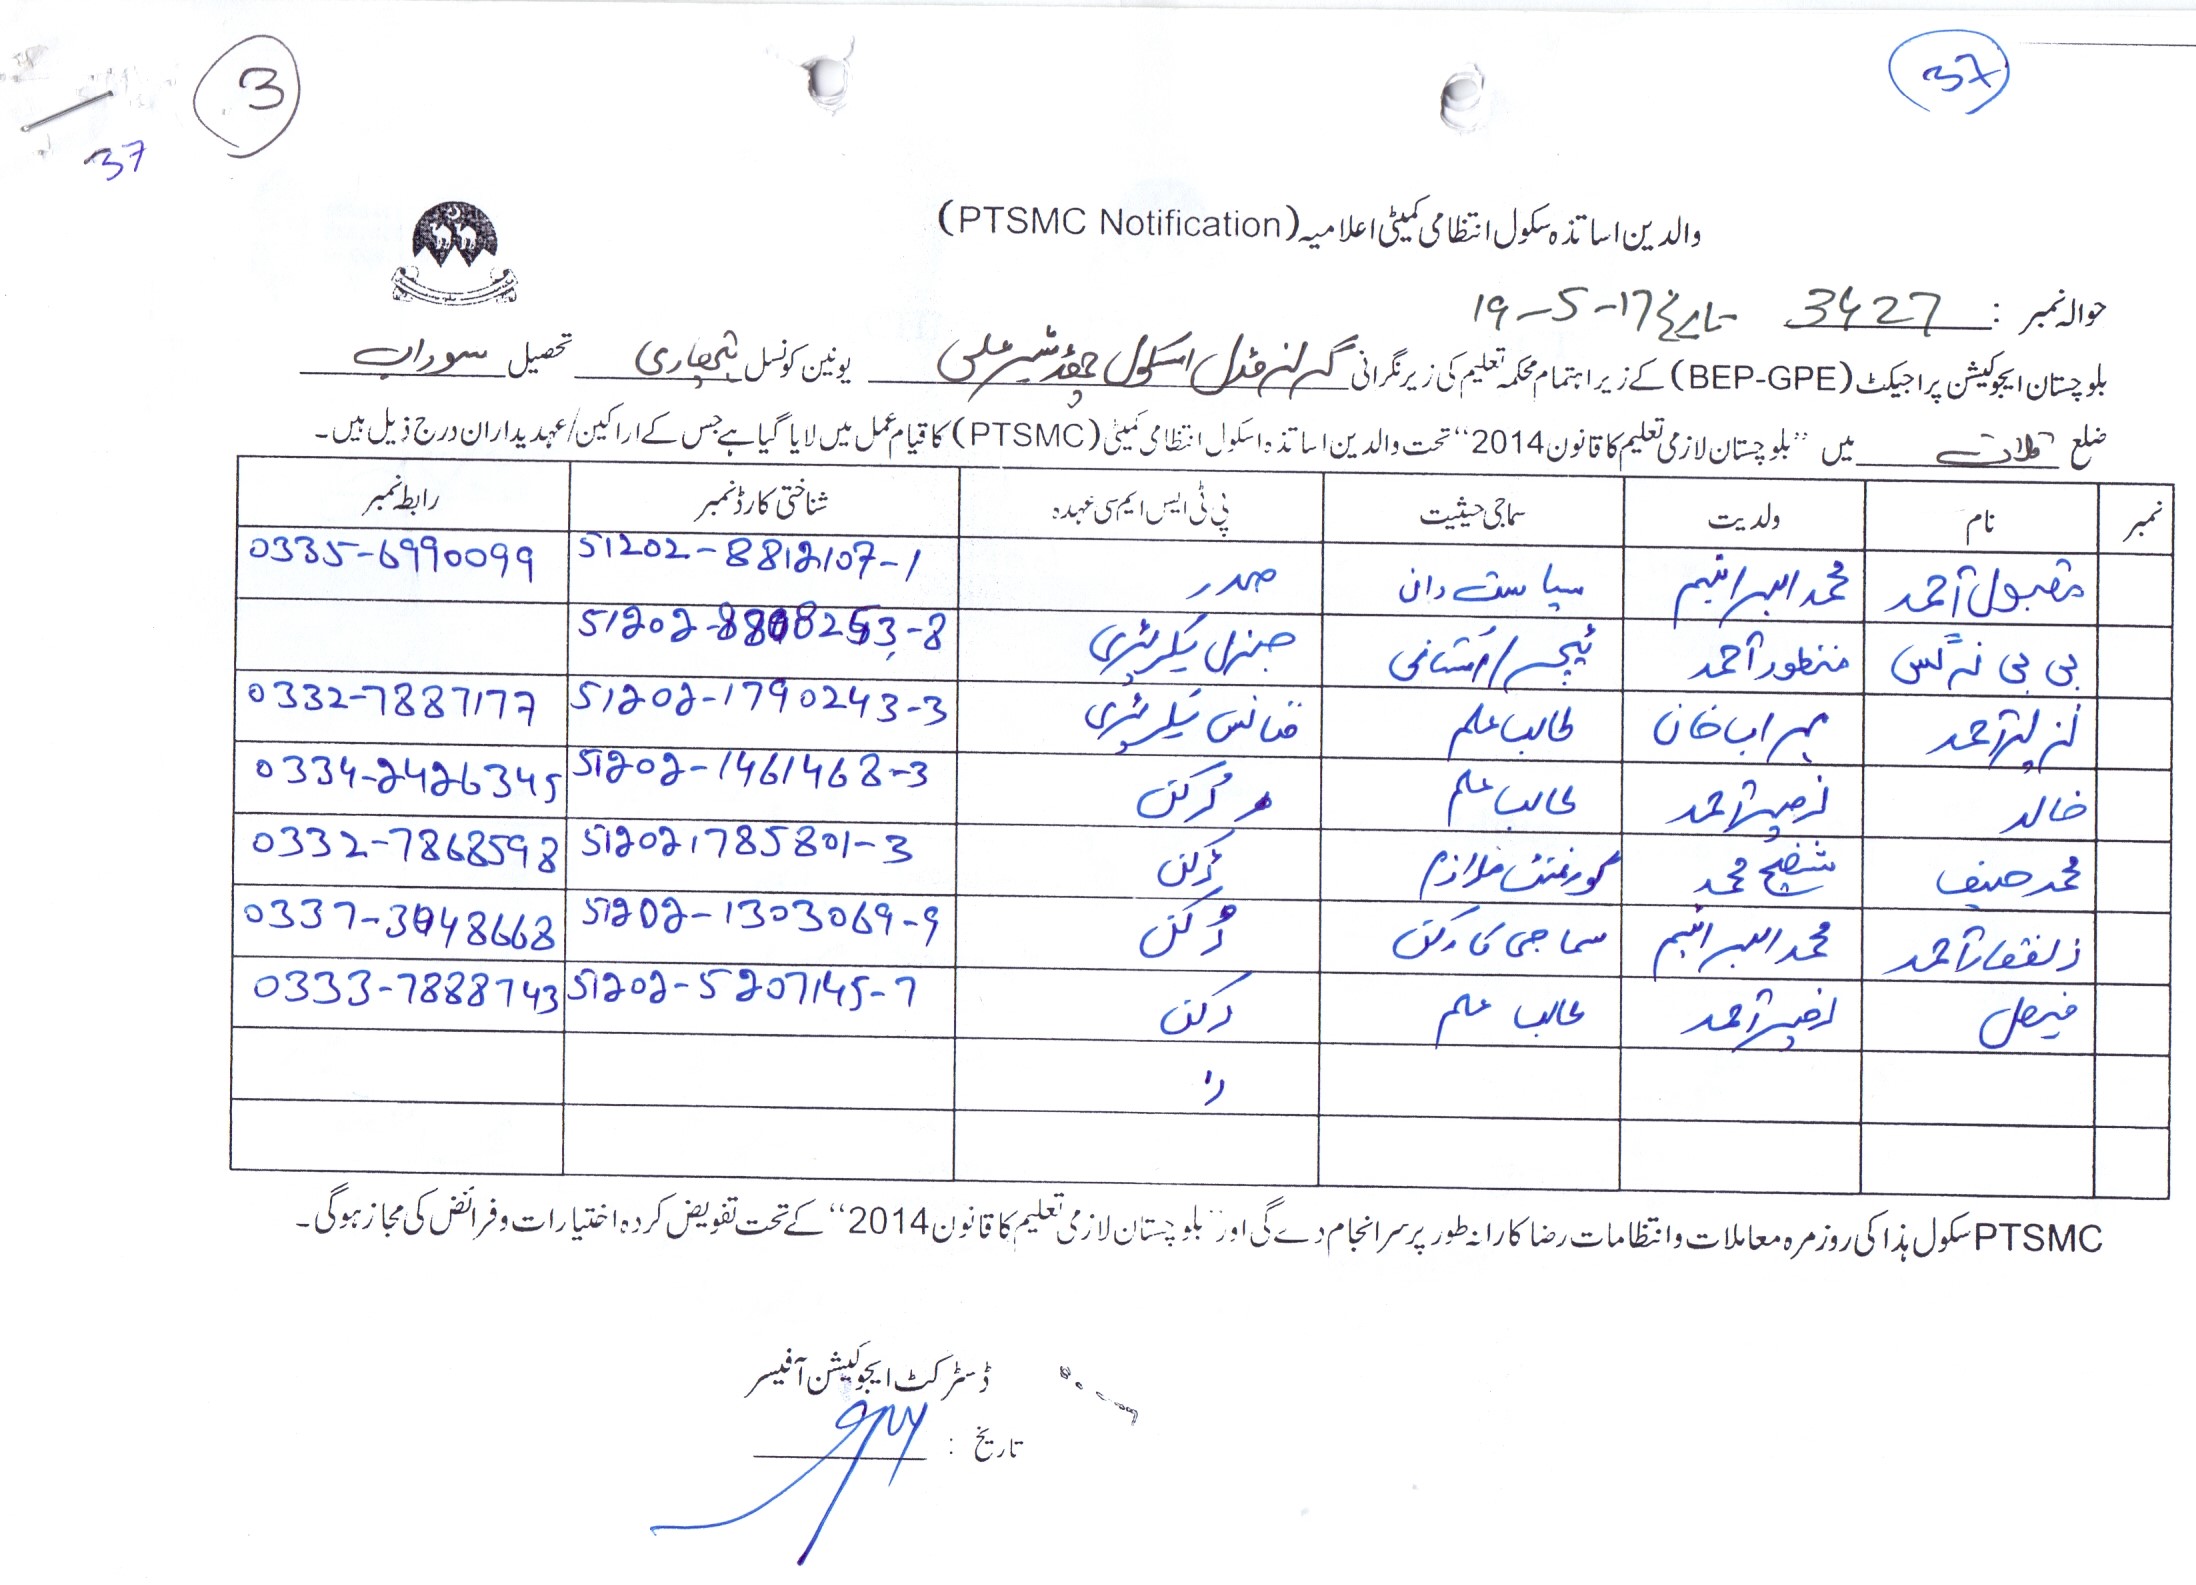 3
37
37
والدین اساتذہ سکول انتظامی کمیٹی اعلامیہ (PTSMC Notification)
حوالہ نمبر : 3427 تاریخ 17-5-19
بلوچستان ایجوکیشن پراجیکٹ (BEP-GPE) کے زیر اہتمام محکمہ تعلیم کی زیر نگرانی گرلز مڈل اسکول شیر علی یونین کونسل تحصیل سوراب
ضلع قلات میں "بلوچستان لازمی تعلیم کا قانون 2014" تحت والدین اساتذہ اسکول انتظامی کمیٹی (PTSMC) کا قیام عمل میں لایا گیا ہے جس کے اراکین/عہدیداران درج ذیل ہیں۔
نمبر نام ولدیت سماجی حیثیت پی ٹی ایس ایم سی عہدہ شناختی کارڈ نمبر رابطہ نمبر
مقبول احمد محمد ابراہیم سیاست دان صدر 51202-8812107-1 0335-6990099
بی بی نرگس منظور احمد ٹیچر/استانی جنرل سیکریٹری
احمد مہراب خان طالب علم فنانس سیکریٹری 51202-1790243-3 0332-7887177
خالد نصیر احمد طالب علم رکن 51202-1461468-3 0334-2426345
محمد حنیف محمد گورنمنٹ ملازم رکن 512021785801-3 0332-7868598
ذلفقار احمد محمد ابراہیم سماجی کارکن رکن 51202-1303069-9
فیصل نصیر احمد طالب علم رکن 51202-5207145-7 0333-7888743
PTSMC سکول ہذا کی روزمرہ معاملات و انتظامات رضا کارانہ طور پر سرانجام دے گی اور "بلوچستان لازمی تعلیم کا قانون 2014" کے تحت تفویض کردہ اختیارات و فرائض کی مجاز ہوگی۔
ڈسٹرکٹ ایجوکیشن آفیسر
تاریخ :